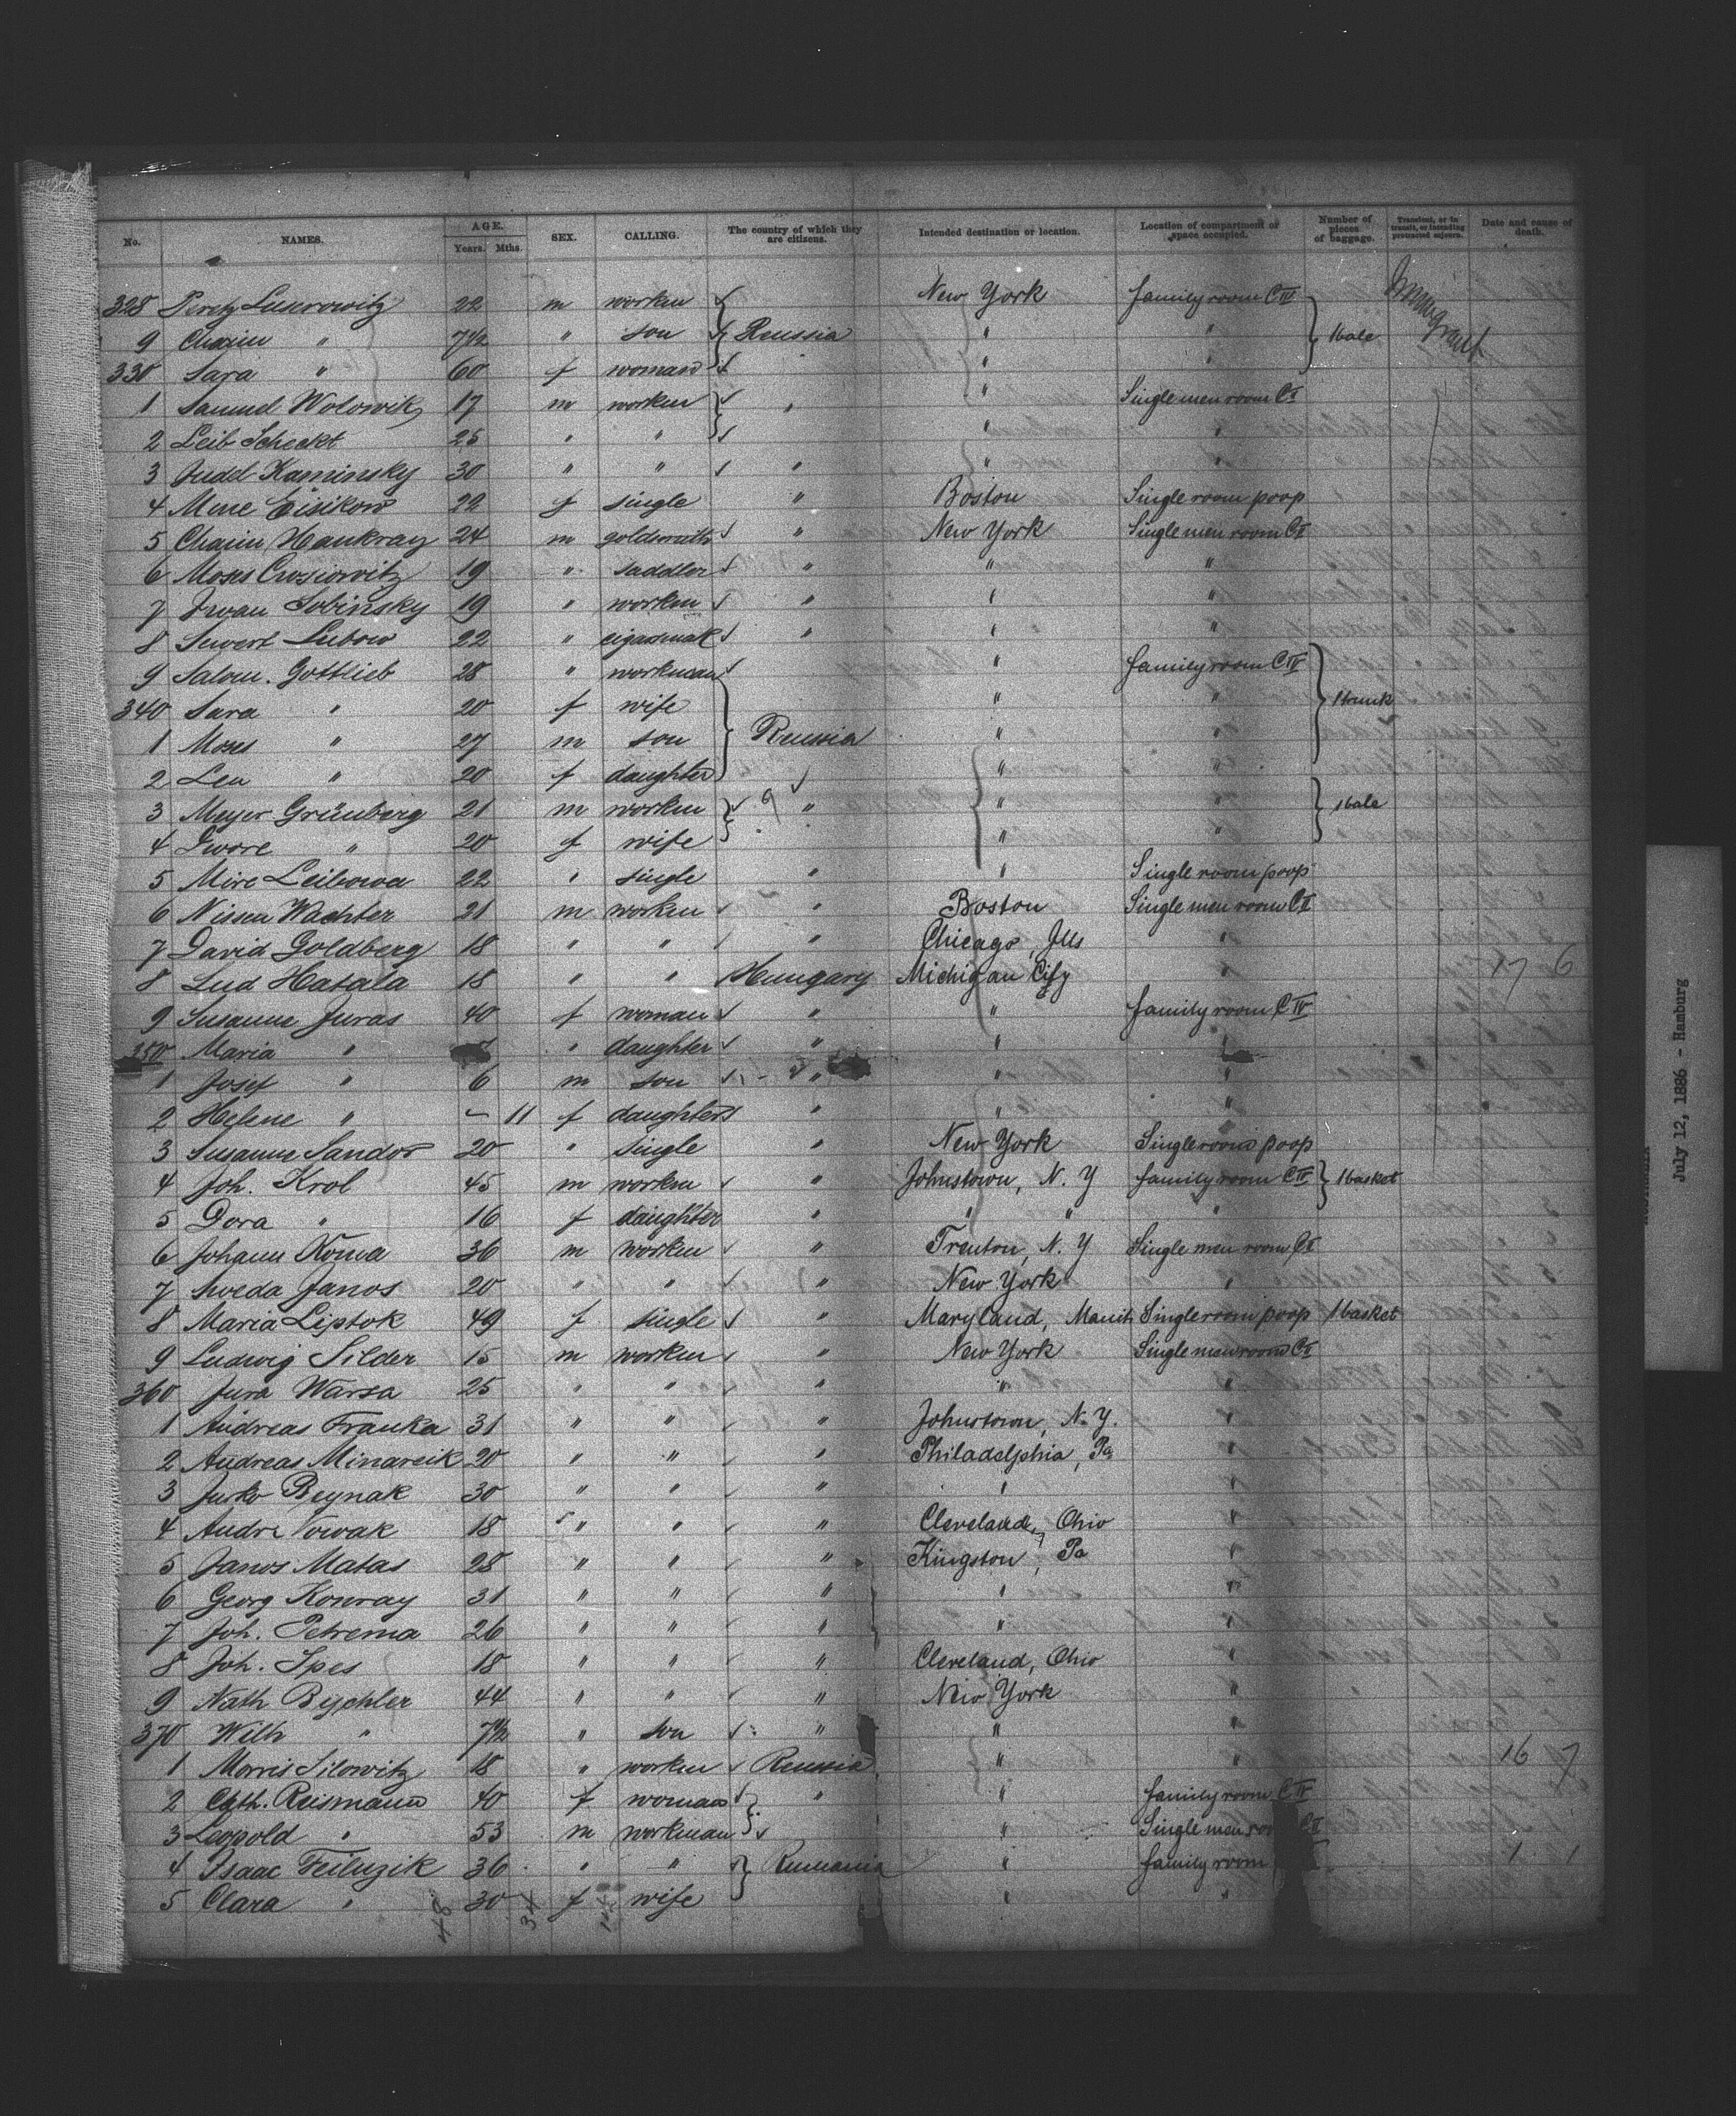 No. NAMES. AGE. Years. Mths. SEX. CALLING. The country of which they are citizens. Intended destination or location. Location of compartment or space occupied. Number of pieces of baggage. Transient, or in transit, or intending protracted sojourn. Date and cause of death.
328 22 m worken New York family room C IV Immigrant
9 Chaim " 7 1/2 " son Reussia " " 1 bale
330 Sara " 60 f woman " "
1 Samuel Wolowik 17 m worken " " Single men room C II
2 Leib Scheckt 25 " " " "
3 Judel Kaminsky 30 " " " " "
4 Mere Eisikow 22 f single " Boston Single room poop
5 Chaim Haukray 24 m goldsmith " New York Single men room C II
6 Moses 19 " saddler " " "
7 Iwan Sobinsky 19 " worken " " "
8 Lubow 22 " cigarrmak " " "
9 Salom. Gottlieb 28 " workman " family room C IV
340 Sara " 20 f wife " " 1 trunk
1 Moses " 27 m son Reussia " "
2 Lea " 20 f daughter " "
3 Meyer Grünberg 21 m worken " " " 1 bale
4 Dwore " 20 f wife " "
5 Mire Leibowa 22 " single " " Single room poop
6 Nissen Wachter 21 m worken " Boston Single men room C II
7 David Goldberg 18 " " " Chicago, Ills "
8 Lud Hatala 18 " " Hungary Michigan City " 17 6
9 Susanne Juras 40 f woman " " family room C IV
350 Maria " " daughter " " "
1 Josef " 6 m son " " "
2 Helene " - 11 f daughter " " "
3 Susanne Sandor 20 " single " New York Single room poop
4 Joh. Krol 45 m worken " Johnstown, N. Y family room C IV 1 basket
5 Dora " 16 f daughter " " " "
6 Johann Koma 36 m worken " Trenton, N. Y Single men room C II
7 Sweda Janos 20 " " " New York "
8 Maria Liptok 49 f single " Maryland, Single room poop 1 basket
9 Ludwig Silder 15 m worken " New York Single men room C II
360 Jura Warsa 25 " " " " "
1 Andreas Franka 31 " " " Johnstown, N. Y. "
2 Andreas Minarcik 20 " " " Philadelphia, Pa "
3 Jurko Beynak 30 " " " " "
4 Andr. Nowak 18 " " " Cleveland, Ohio "
5 Janos Matas 28 " " " Kingston, Pa "
6 Georg Konray 31 " " " " "
7 Joh. Petrema 26 " " " " "
8 Joh. Spes 18 " " " Cleveland, Ohio "
9 Nath Bischler 44 " " " New York "
370 Wilh " 7 1/2 " son " " "
1 Morris Silowitz 18 " worken Reussia " " 16 7
2 Cath. Reismann 40 f woman " " family room C IV
3 Leopold " 53 m workman " Single men room C II
4 Isaac Feiluzik 36 " " Rumania " family room 1 1
5 Clara " 30 f wife " "
48 34
July 12, 1886 - Hamburg